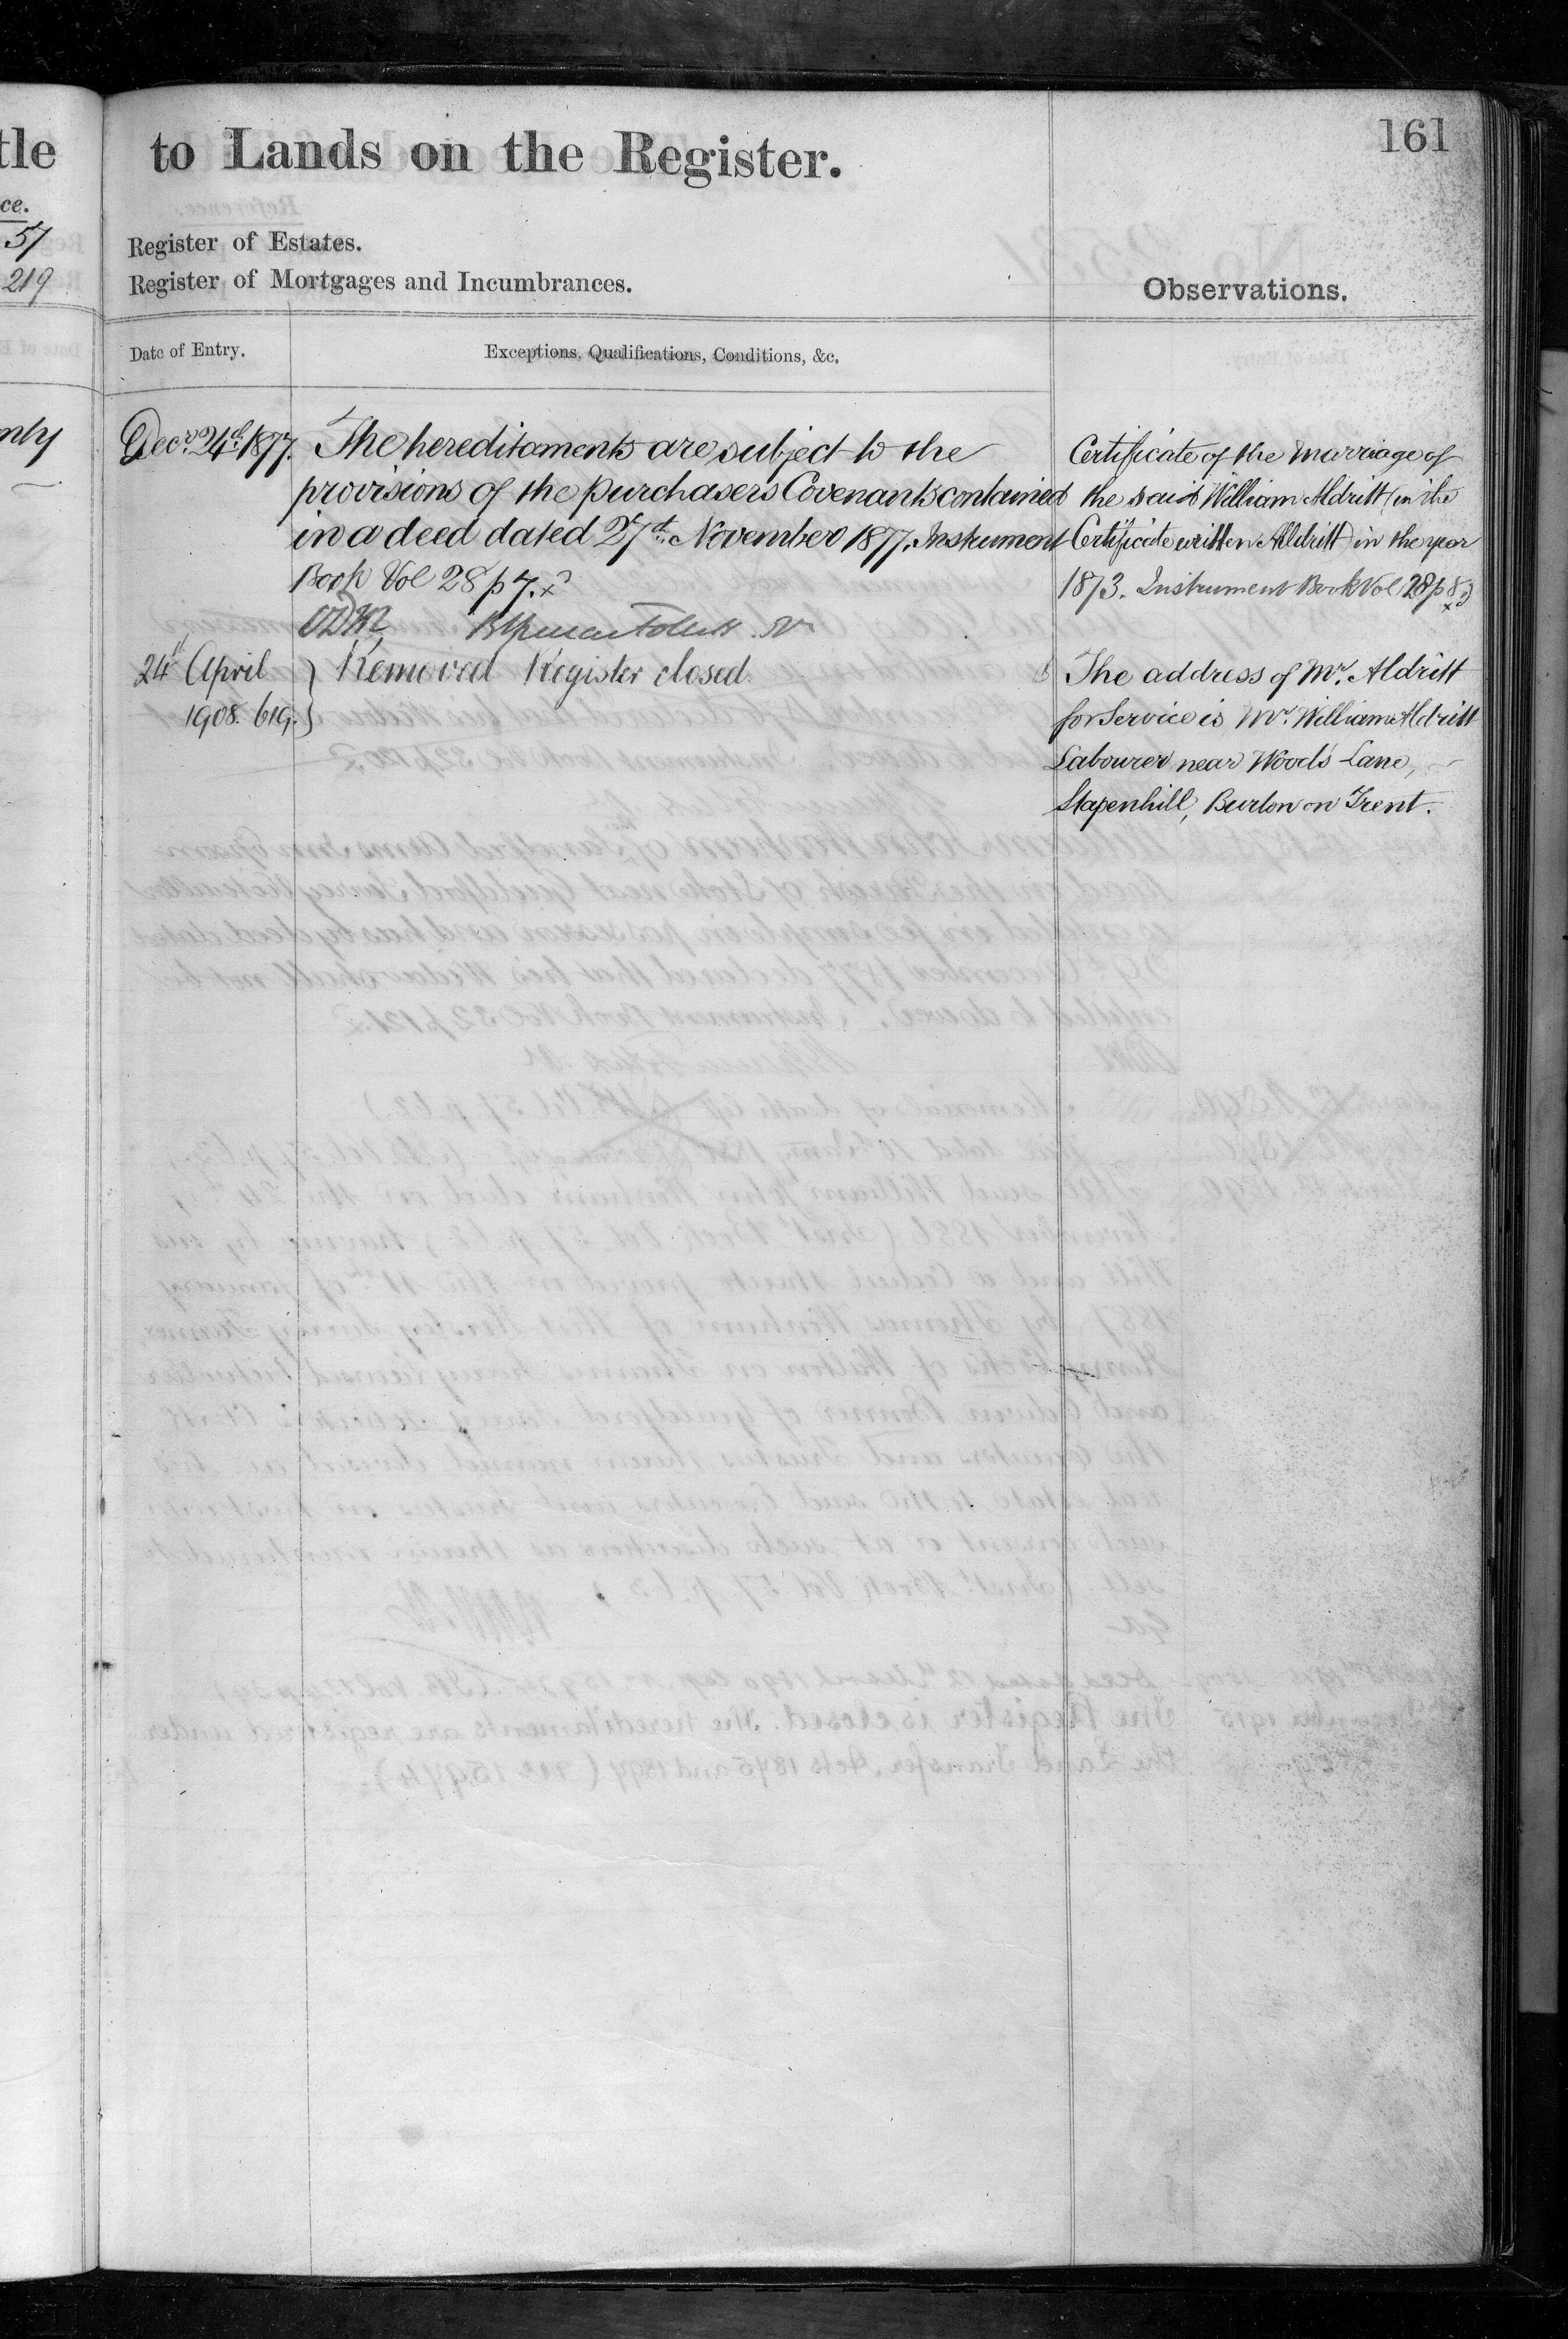 tle
ce.
57
219
nly
to Lands on the Register.
161
Register of Estates.
Register of Mortgages and Incumbrances.
Observations.
Date of Entry.
Exceptions, Qualifications, Conditions, &c.
Decr. 24th 1877.
The hereditaments are subject to the
provisions of the purchasers Covenants contained
in a deed dated 27th November 1877. Instrument
Book Vol 28 p 7.
24th April
1908. 619.
Removed Register closed.
Certificate of the marriage of
the said William Aldritt (in the
Certificate written Alldritt) in the year
1873. Instrument Book Vol 28 p 8
The address of Mr. Aldritt
for Service is Mr. William Aldritt
Labourer near Wood's Lane,
Stapenhill, Burton on Trent.